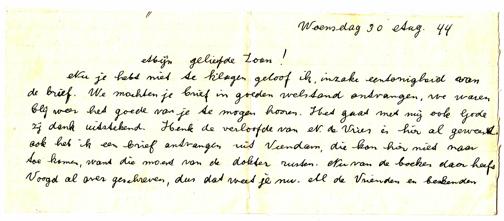 Woensdag 30 Aug. 44
Mijn geliefde Zoon!
Nu je hebt niet te klagen geloof ik, inzake eentonigheid van
de brief. We mochten je brief in goeden welstand ontvangen, we waren
blij weer het goede van je te mogen horen. Het gaat met mij ook Gode
zij dank uitstekend. Henk de verloofde van N. de Vries is hier al geweest
ook heb ik een brief ontvangen uit Veendam, die kon hier niet naar
toe komen, want die moest van de dokter rusten. Nu van de boeken daar heeft
Voogd al over geschreven, dus dat weet je nu. Al de Vrienden en bekenden